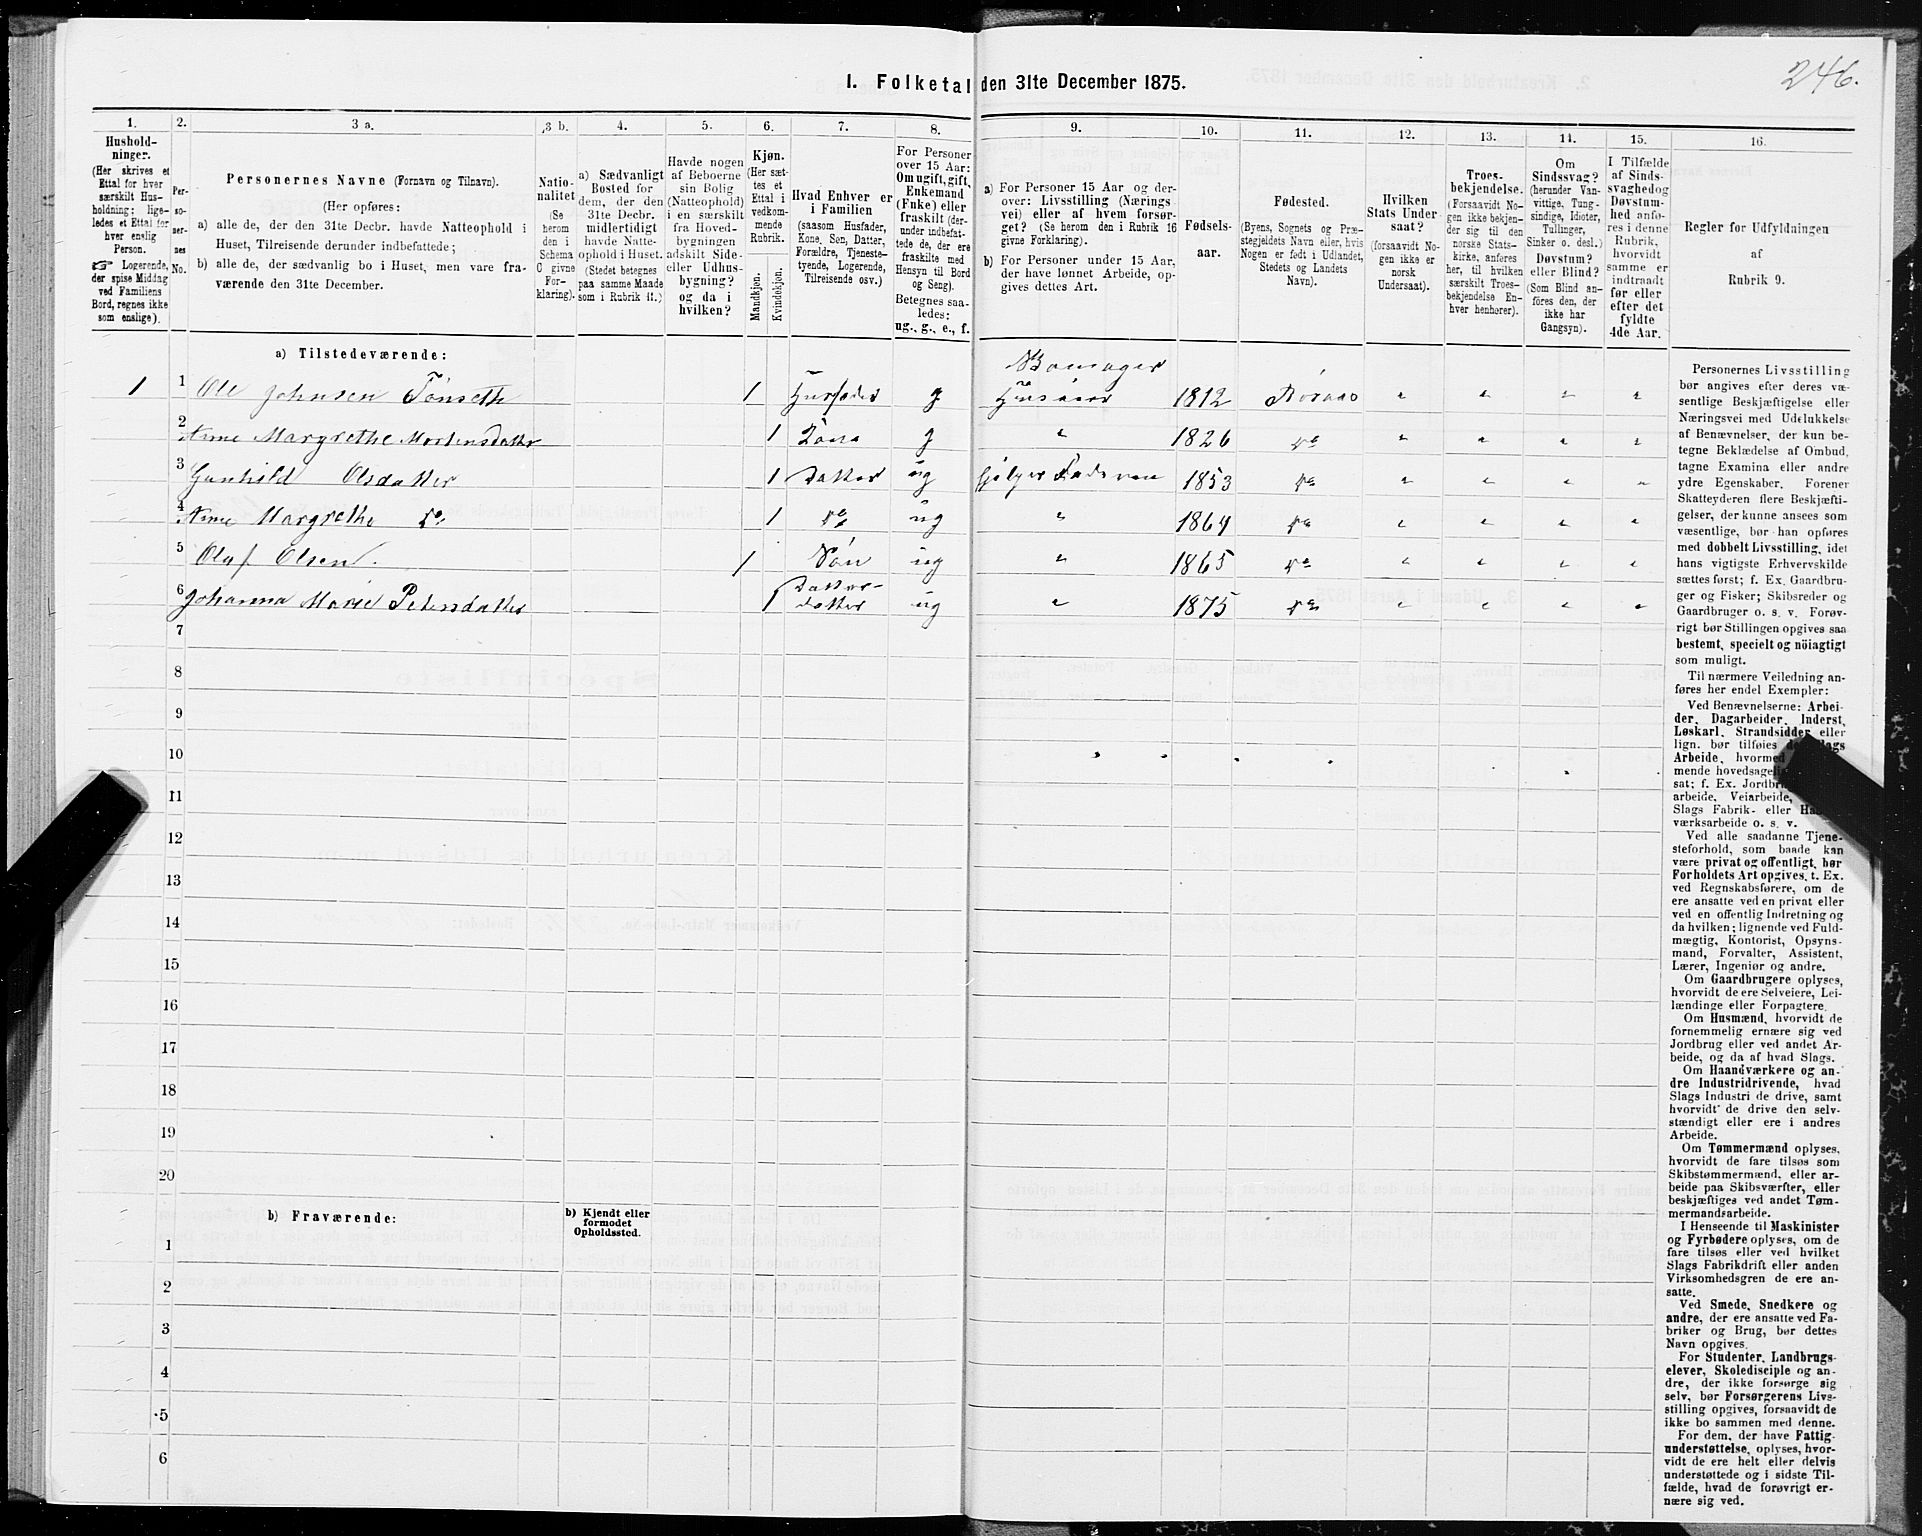 246.
I. Folketal den 31te December 1875.
1. 2. 3 a. 3 b. 4. 5. 6. 7. 8. 9. 10. 11. 12. 13. 14. 15. 16.
Hushold-
ninger.
(Her skrives et
Ettal for hver
særskilt Hus-
holdning; lige-
ledes et Ettal for
hver enslig
Person.
☞ Logerende,
der spise Middag
ved Familiens
Bord, regnes ikke
som enslige).
Per-
so-
ner-
nes
No.
Personernes Navne (Fornavn og Tilnavn).
(Her opføres:
a) alle de, der den 31te Decbr. havde Natteophold i
Huset, Tilreisende derunder indbefattede;
b) alle de, der sædvanlig bo i Huset, men vare fra-
værende den 31te December.
Natio-
nalitet
(Se
herom
den i
Schema
C givne
For-
klaring).
a) Sædvanligt
Bosted for
dem, der den
31te Decbr.
midlertidigt
havde Natte-
ophold i Huset.
(Stedet betegnes
paa samme Maade
som i Rubrik 11.)
Havde nogen
af Beboerne
sin Bolig
(Natteophold)
i en særskilt
fra Hoved-
bygningen
adskilt Side-
eller Udhus-
bygning?
og da i
hvilken?
Kjøn.
(Her sæt-
tes et
Ettal i
vedkom-
mende
Rubrik.
Mandkjøn.
Kvindekjøn.
Hvad Enhver er
i Familien
(saasom Husfader,
Kone, Søn, Datter,
Forældre, Tjeneste-
tyende, Logerende,
Tilreisende osv.)
For Personer
over 15 Aar:
Om ugift, gift,
Enkemand
(Enke) eller
fraskilt (der-
under indbefat-
tede de, der ere
fraskilte med
Hensyn til Bord
og Seng).
Betegnes saa-
ledes:
ug., g., e., f.
a) For Personer 15 Aar og der-
over: Livsstilling (Nærings-
vei) eller af hvem forsør-
get? (Se herom den i Rubrik 16
givne Forklaring).
b) For Personer under 15 Aar,
der have lønnet Arbeide, op-
gives dettes Art.
Fødsels-
aar.
Fødested.
(Byens, Sognets og Præ-
stegjeldets Navn eller, hvis
Nogen er født i Udlandet,
Stedets og Landets
Navn).
Hvilken
Stats Under-
saat?
(forsaavidt No-
gen ikke er
norsk
Undersaat).
Troes-
bekjendelse.
(Forsaavidt No-
gen ikke bekjen-
der sig til den
norske Stats-
kirke, anføres
her, til hvilken
særskilt Troes-
bekjendelse En-
hver henhører).
Om
Sindssvag?
(herunder Van-
vittige, Tung-
sindige, Idioter,
Tullinger,
Sinker o. desl.)
Døvstum?
eller Blind?
(Som Blind an-
føres den, der
ikke har
Gangsyn).
I Tilfælde
af Sinds-
svaghed og
Døvstum-
hed anfø-
res i denne
Rubrik,
hvorvidt
samme er
indtraadt
før eller
efter det
fyldte
4de Aar.
Regler for Udfyldningen
af
Rubrik 9.
a) Tilstedeværende:
1 1 Ole Johnsen Tönseth 1 Husfader g Bomager Huseier 1812 Röraas " " " "
2 Anne Margrethe Mortensdatter 1 Kone g " 1826 do " " " "
3 Gunhild Olsdatter 1 Datter ug hjelper Faderen 1853 do " " " "
4 Anne Margrethe do 1 do ug " 1864 do " " " "
5 Oluf Olsen. 1 Sön ug " 1865 do " " " "
6 Johanna Marie Petersdatter 1 Datter-datter ug " 1875 do " " " "
7
8
9
10
11
12
13
14
15
16
17
18
19
20
b) Fraværende:
b) Kjendt eller
formodet
Opholdssted.
1
2
3
4
5
6
Personernes Livsstilling
bør angives efter deres væ-
sentlige Beskjæftigelse eller
Næringsvei med Udelukkelse
af Benævnelser, der kun be-
tegne Beklædelse af Ombud,
tagne Examina eller andre
ydre Egenskaber. Forener
Skatteyderen flere Beskjæfti-
gelser, der kunne ansees som
væsentlige, bør han opføres
med dobbelt Livsstilling, idet
hans vigtigste Erhvervskilde
sættes først; f. Ex. Gaardbru-
ger og Fisker; Skibsreder og
Gaardbruger o. s. v. Forøv-
rigt bør Stillingen opgives saa
bestemt, specielt og nöiagtigt
som muligt.
Til nærmere Veiledning an-
føres her endel Exempler:
Ved Benævnelserne: Arbei-
der, Dagarbeider, Inderst,
Løskarl, Strandsidder eller
lign. bør tilføies
Arbeide, hvormed
mende
sat; f. Ex.
arbeide, Veiarbeide,
Slags Fabrik- eller
værksarbeide o. s. v.
Ved alle saadanne Tjene-
steforhold, som baade kan
være privat og offentligt, bør
Forholdets Art opgives, t. Ex.
ved Regnskabsførere, om de
ere ansatte ved en privat eller
ved en offentlig Indretning og
da hvilken; lignende ved Fuld-
mægtig, Kontorist, Opsyns-
mand, Forvalter, Assistent,
Lærer, Ingeniør og andre.
Om Gaardbrugere oplyses,
hvorvidt de ere Selveiere, Lei-
lændinge eller Forpagtere.
Om Husmænd, hvorvidt de
fornemmelig ernære sig ved
Jordbrug eller ved andet Ar-
beide, og da af hvad Slags.
Om Haandværkere og an-
dre Industridrivende, hvad
Slags Industri de drive, samt
hvorvidt de drive den selv-
stændigt eller ere i andres
Arbeide.
Om Tømmermænd oplyses,
hvorvidt de fare tilsøs som
Skibstømmermænd, eller ar-
beide paa Skibsværfter, eller
beskjæftiges ved andet Tøm-
mermandsarbeide.
I Henseende til Maskinister
og Fyrbødere oplyses, om de
fare tilsøs eller ved hvilket
Slags Fabrikdrift eller anden
Virksomhedsgren de ere an-
satte.
Ved Smede, Snedkere og
andre, der ere ansatte ved Fa-
briker og Brug, bør dettes
Navn opgives.
For Studenter, Landbrugs-
elever, Skoledisciple og an-
dre, der ikke forsørge sig
selv, bør Forsørgerens Livs-
stilling opgives, forsaavidt de
ikke bo sammen med denne.
For dem, der have Fattig-
understøttelse, oplyses, hvor-
vidt de ere helt eller delvis
understøttede og i sidste Til-
fælde, hvad de forøvrigt er-
nære sig ved.